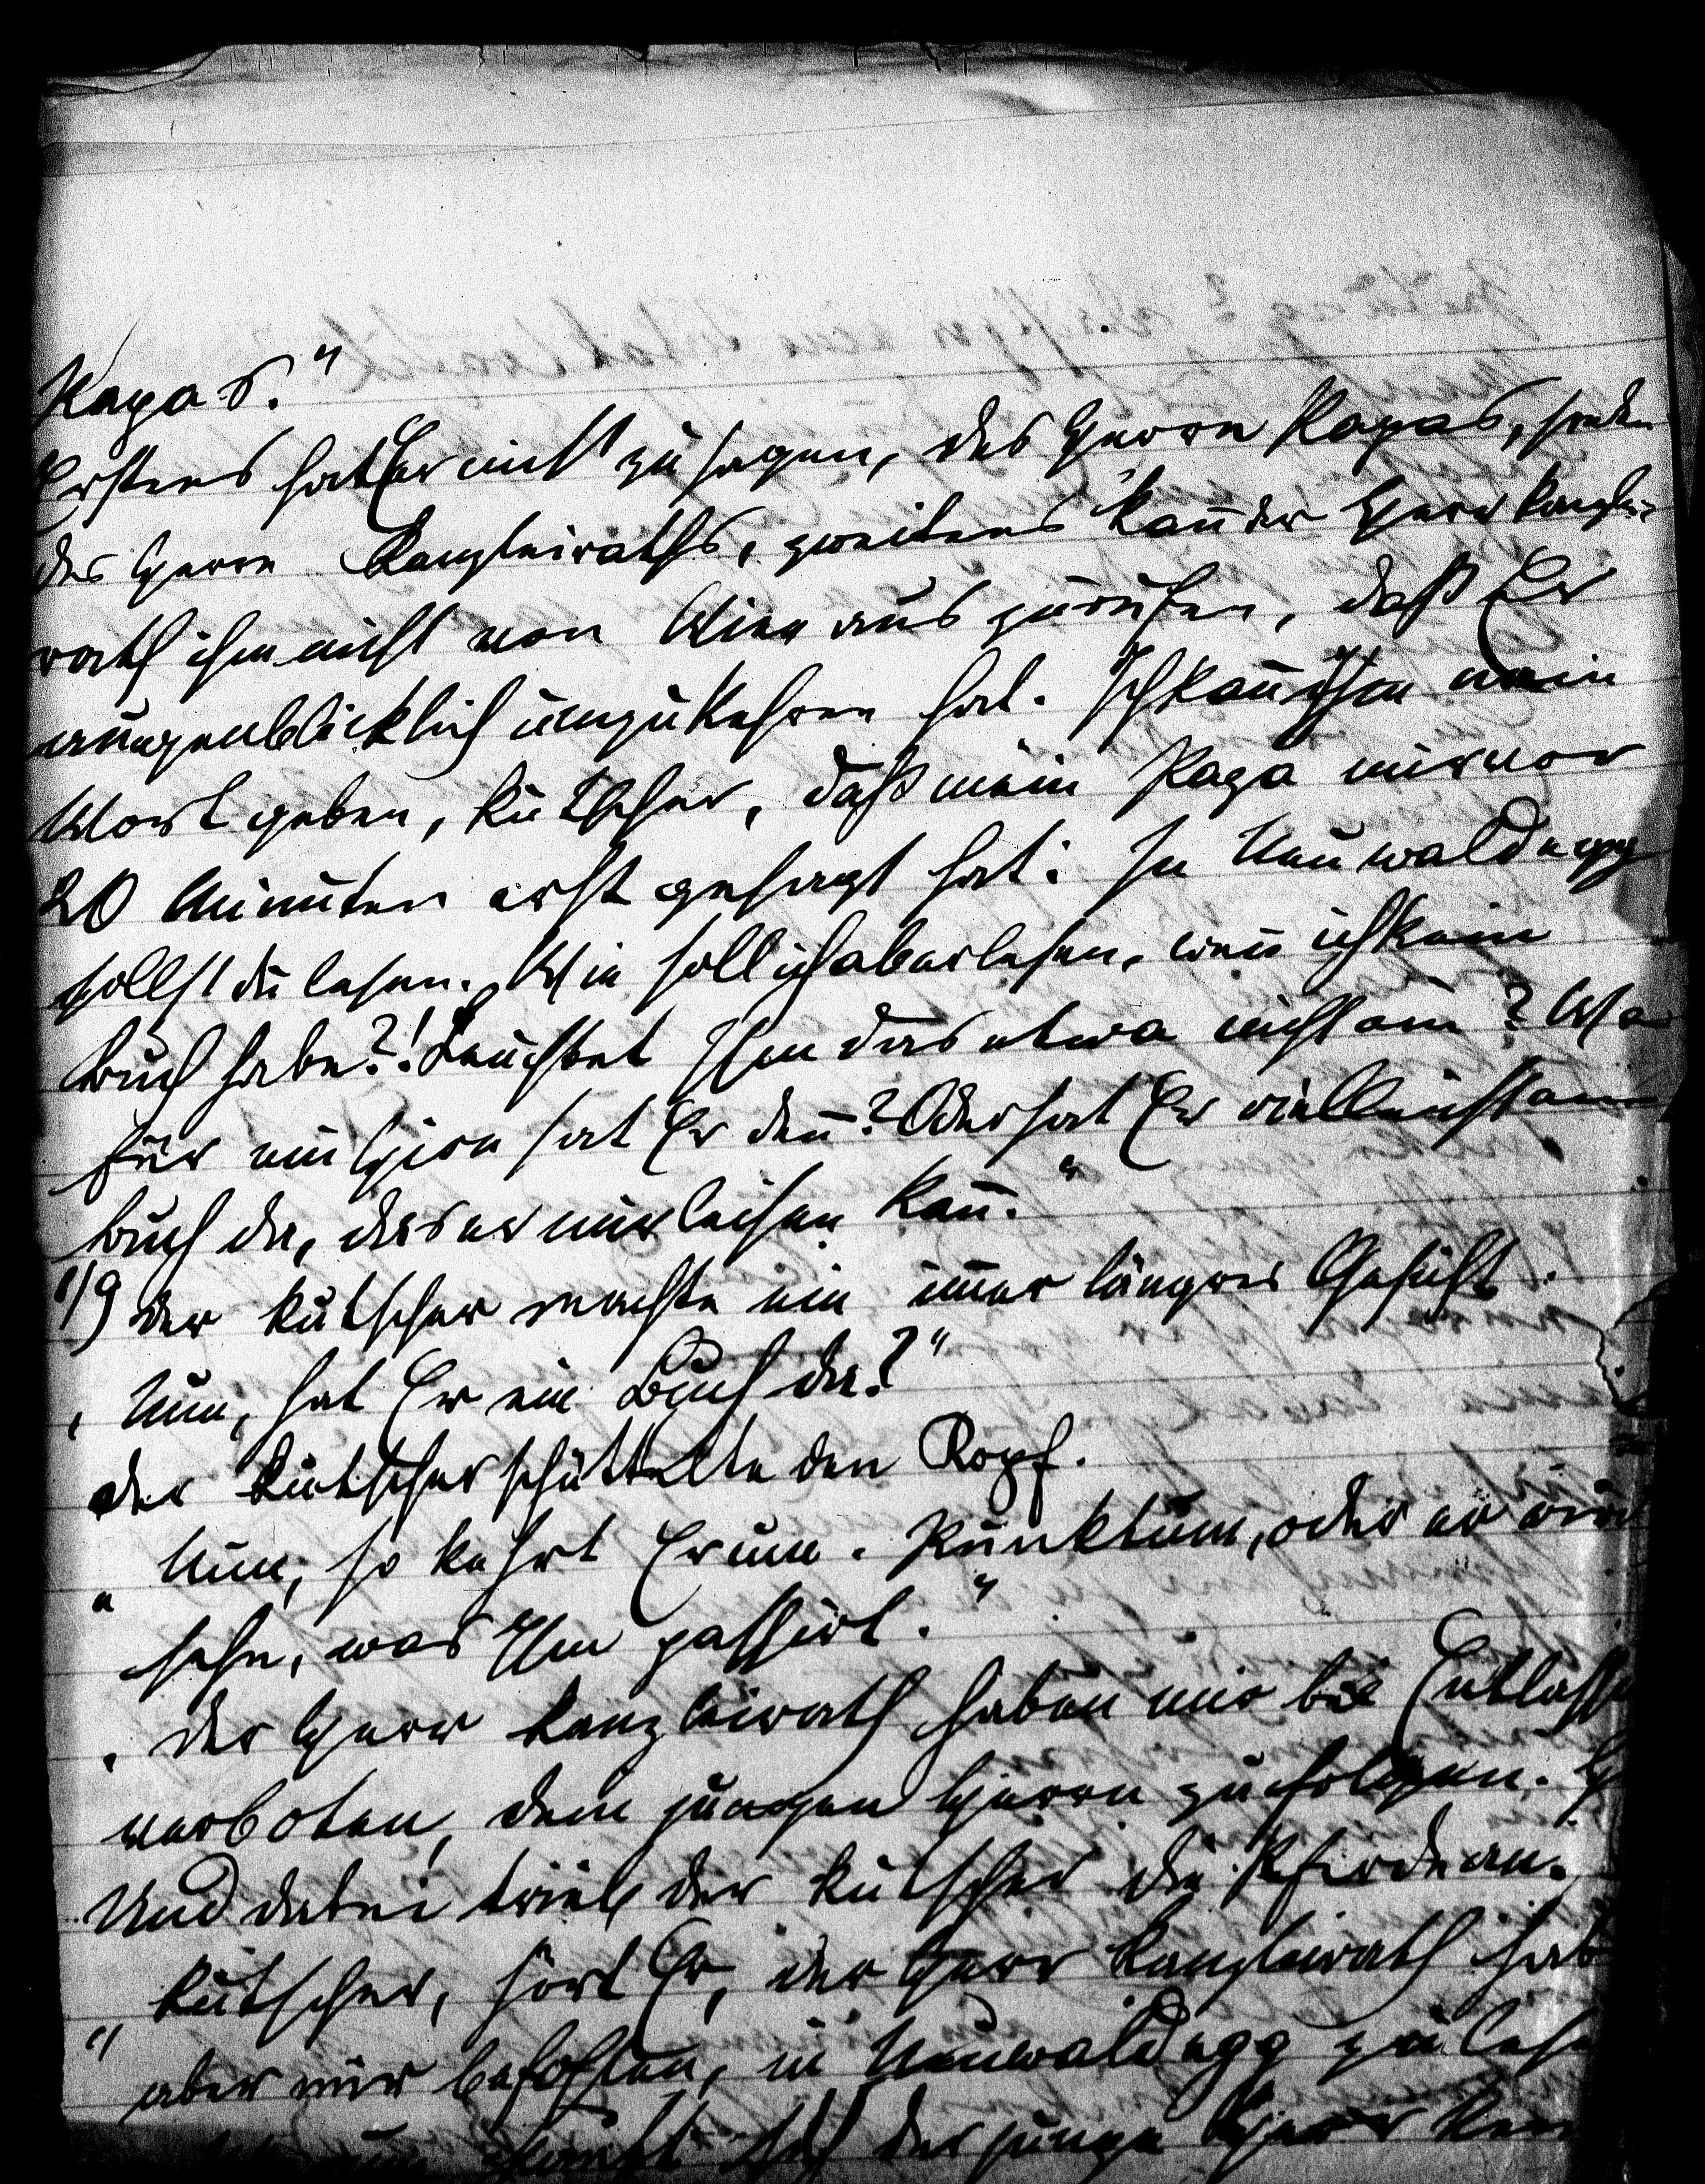 Papas."
Erstens hat Er nicht zu sagen, des Herrn Papas, sondern
des Herrn Kanzleiraths, zweitens kann der Herr Kanzlei-
rath ihm nicht von Wien aus zurufen, daß Er
augenblicklich umzukehren hat. Ich kann Ihm mein
Wort geben, Kutscher, daß mein Papa mir vor
20 Minuten erst gesagt hat: In Neuwaldegg
sollst du lesen. Wie soll ich aber lesen, wenn ich kein
Buch habe?! Leuchtet Ihm das etwa nicht ein? Was
für ein Hirn hat Er denn? Oder hat Er vielleicht ein
Buch da, das er mir leihen kann."
Der Kutscher machte ein immer längres Gesicht.
„Nun, hat Er ein Buch da?"
Der Kutscher schüttelte den Kopf.
„Nun, so kehrt Er um. Punktum, oder er wird
sehn, was Ihm passirt."
„Der Herr Kanzleirath haben mir bei Entlassung
verboten, dem jungen Herrn zu folgen.
Und dabei trieb der Kutscher die Pferde an.
„Kutscher, hört Er, der Herr Kanzleirath hat
aber mir befohlen, in Neuwaldegg zu lesen
der junge Herr